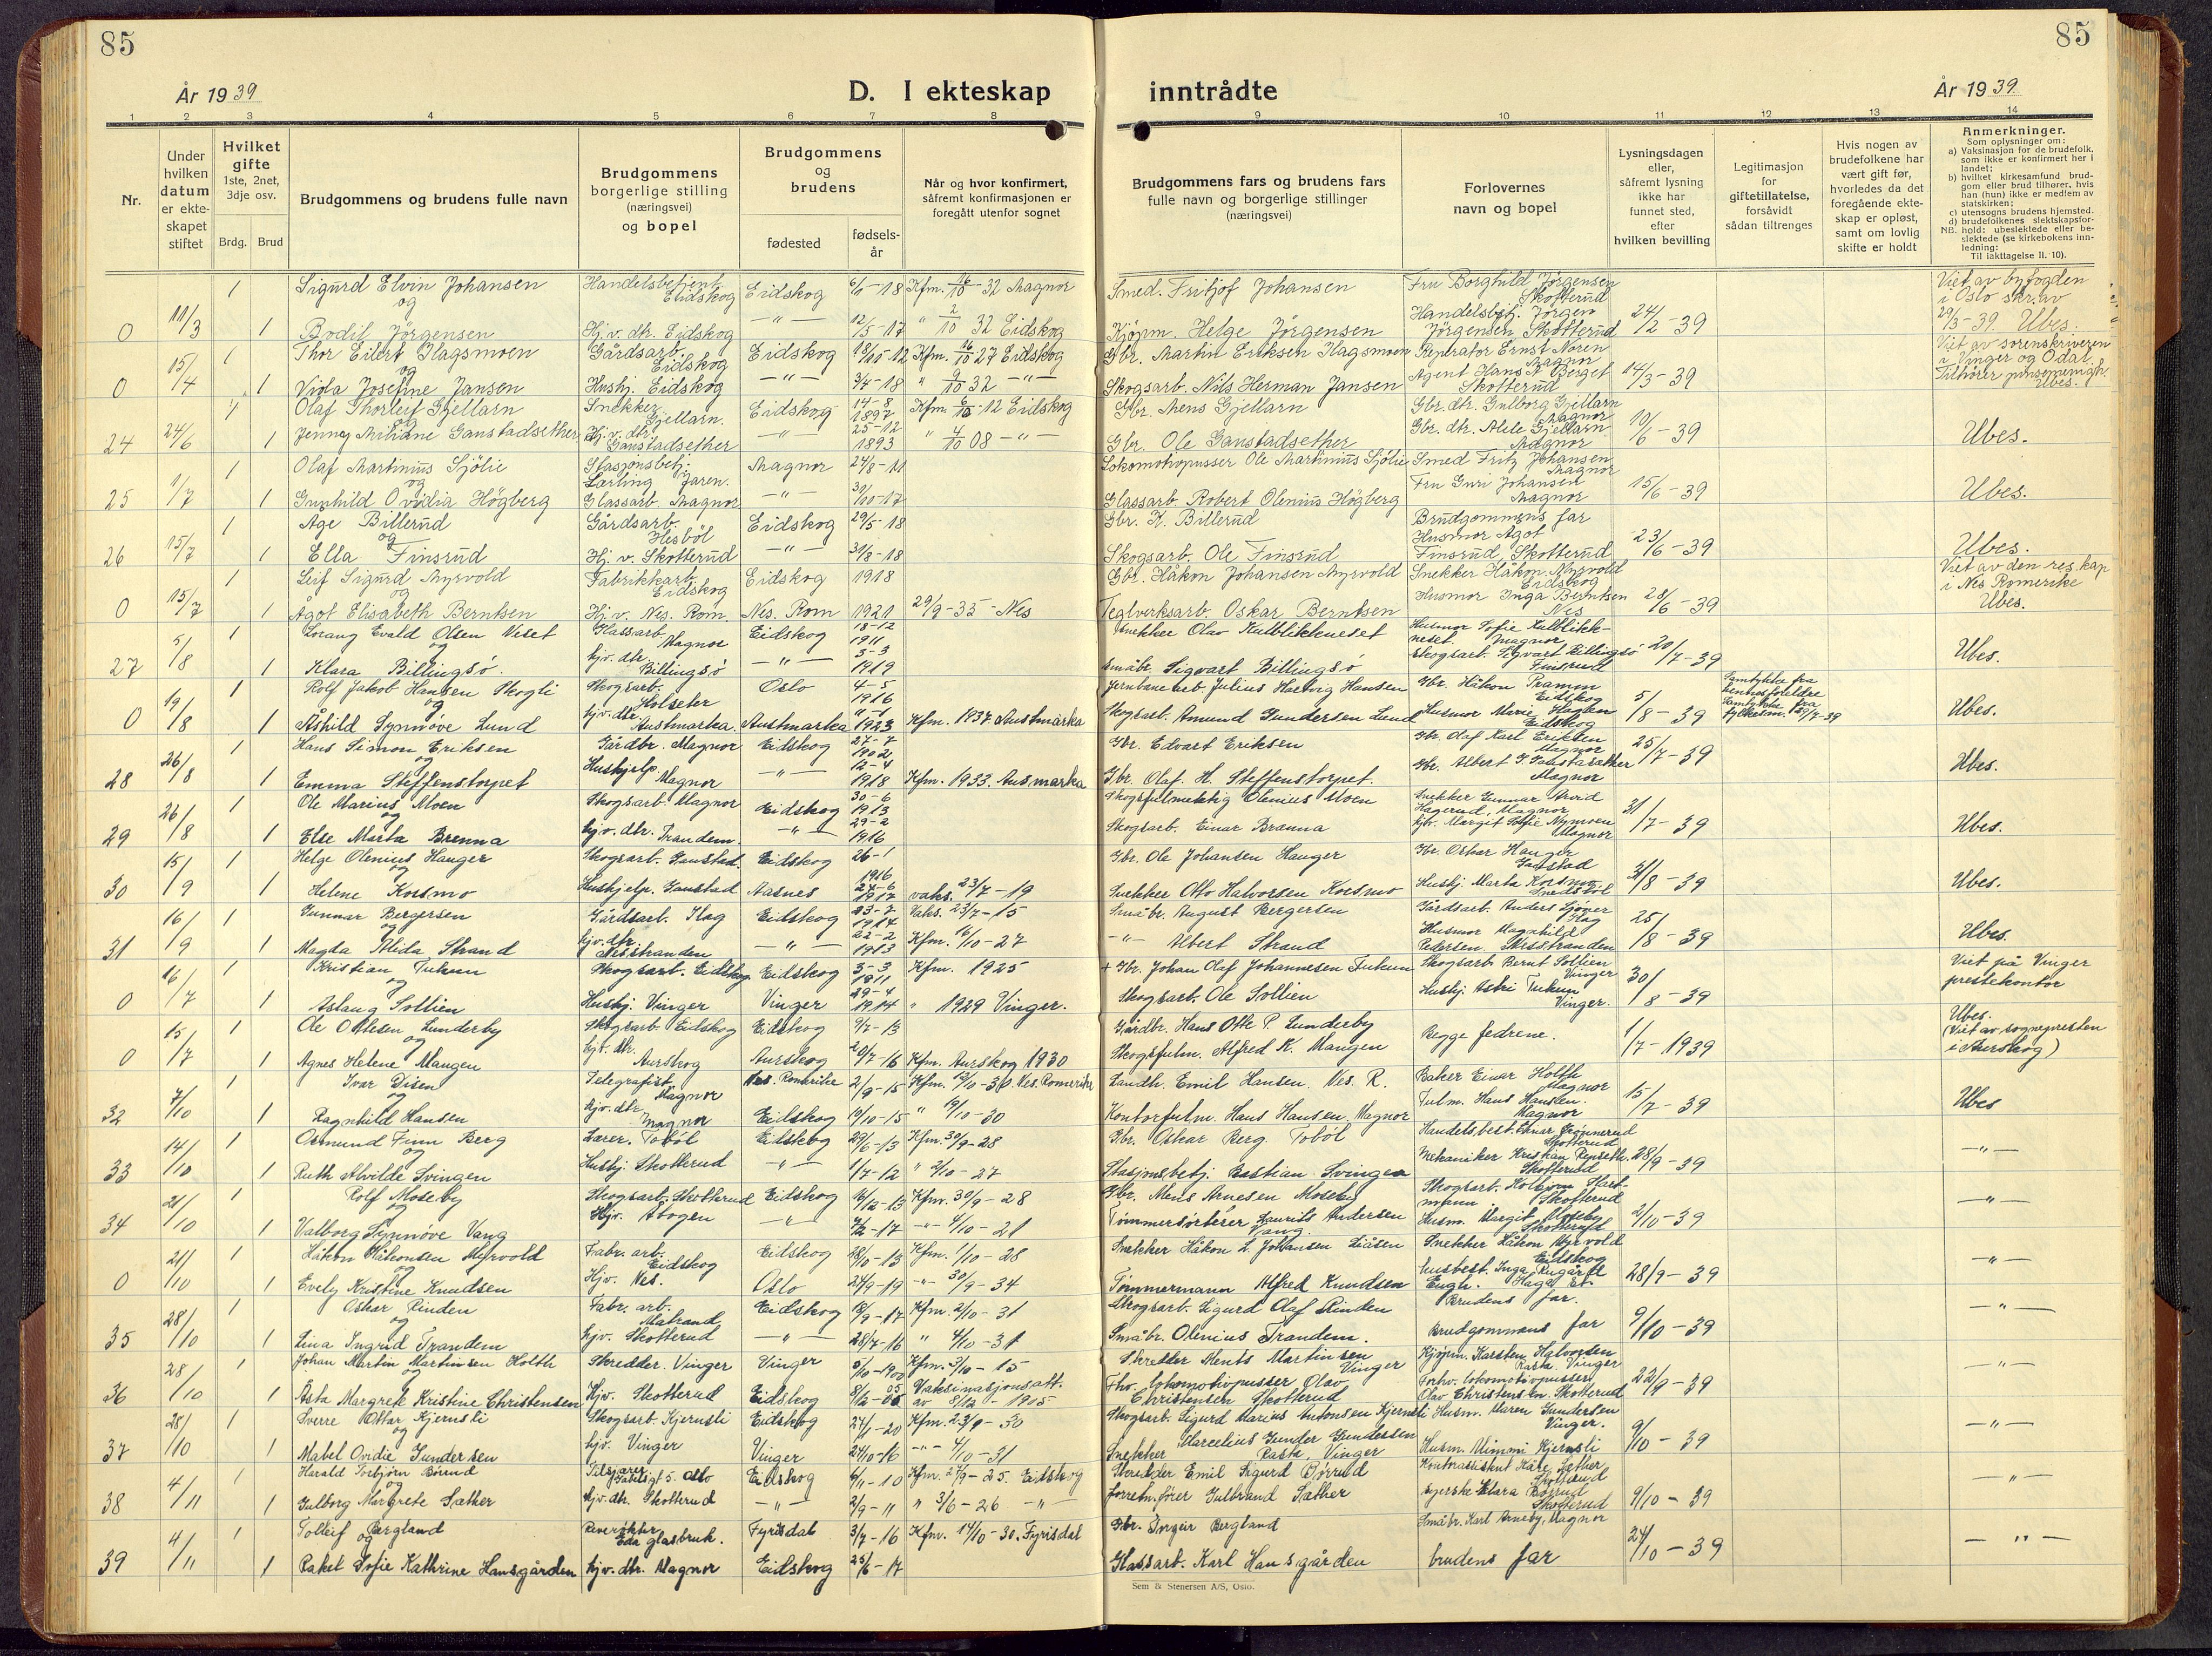 85
85
År 1939
D. I ekteskap
inntrådte
År 1939.
1 2 3 4 5 6 7 8 9 10 11 12 13 14
Nr.
Under hvilken datum er ekteskapet stiftet
Hvilket gifte 1ste, 2net, 3dje osv.
Brdg. Brud
Brudgommens og brudens fulle navn
Brudgommens borgerlige stilling (næringsvei) og bopel
Brudgommens og brudens
fødested
fødselsår
Når og hvor konfirmert, såfremt konfirmasjonen er foregått utenfor sognet
Brudgommens fars og brudens fars fulle navn og borgerlige stillinger (næringsvei)
Forlovernes navn og bopel
Lysningsdagen eller, såfremt lysning ikke har funnet sted, efter hvilken bevilling
Legitimasjon for giftetillatelse, forsåvidt sådan tiltrenges
Hvis nogen av brudefolkene har vært gift før, hvorledes da det foregående ekteskap er opløst, samt om lovlig skifte er holdt
Anmerkninger.
Som oplysninger om:
a) Vaksinasjon for de brudefolk, som ikke er konfirmert her i landet;
b) hvilket kirkesamfund brudgom eller brud tilhører, hvis han (hun) ikke er medlem av statskirken;
c) utensogns brudens hjemsted.
d) brudefolkenes slektskapsforhold: ubeslektede eller beslektede (se kirkebokens innledning:
NB.
Til iakttagelse II. 10).
1 Sigurd Elvin Johansen Handelsbetjent Eidskog Eidskog 6/1-18 Kfm. 16/10 32 Magnor Smed. Fritjof Johansen Fru Borghild Jörgensen Skotterud Viet av byfogden
0 11/3 og i Oslo skr. av
1 Bodil Jörgensen Hj. v. dtr. Eidskog -"- 12/5-17 " 2/10 32 Eidskog Kjøpm. Helge Jörgensen Handelsbetj. Jörgen Jörgensen Skotterud 24/2-39 29/3-39. Ubes.
1 Thor Eilert Hagsmoen Gårdsarb. Eidskog Eidskog 18/10-12 Kfm. 16/10 27 Eidskog Gbr. Martin Eriksen Hagsmoen Reperatør Ernst Noren Magnor Viet av sorenskriveren
0 15/4 og i Vinger og Odal.
1 Viola Josefine Jansen Hushj. Eidskog -"- 3/4-18 " 9/10 32 -"- Skogsarb. Nils Herman Jansen Agent Hans A Berget Skotterud 14/3-39 Tilhører pinsemenigh. Ubes.
1 Olaf Thorleif Gjellarn Snekker Gjellarn. Eidskog 14-8 1897 Kfm. 6/10-12 Eidskog Gbr. Mens Gjellarn Gbr. dtr. Gulborg Gjellarn Magnor
24 24/6 og
1 Jenny Miliane Ganstadsether Hj. v. dtr. Ganstadsether -"- 25-12 1893 " 4/10 08 -"- Gbr. Ole Ganstadsether Gbr. dtr. Alele Gjellarn Magnor 10/6-39 Ubes.
1 Olaf Martinius Sjölie Stasjonsbetj. Lærling Jaren. Magnor 24/8-11 Lokomotivpusser Ole Martinius Sjölie Smed Fritz Johansen Magnor
25 1/7 og
1 Gunhild Ovidia Högberg Glassarb. Magnor -"- 30/10-17 Glassarb Robert Olenius Högberg Fru Guri Johansen Magnor 15/6-39 Ubes.
1 Age Billerud Gårdsarb. Hesböl Eidskog 29/5-18 Gbr. K. Billerud Brudgommens far
26 15/7 og
1 Ella Finsrud Hj. v. Skotterud -"- 31/8-18 Skogsarb. Ole Finsrud Husmor Agot Finsrud, Skotterud 23/6-39 Ubes.
1 Leif Sigurd Myrvold Fabrikkarb. Eidskog Eidskog 1918 Gbr. Håkon Johansen Myrvold Snekker Håkon Myrvold Eidskog Viet av den res. kap
0 15/7 og i Nes Romerike
1 Ågot Elisabeth Berntsen Hj. v. Nes. Rom. Nes. Rom 1921 29/9-35-Nes Teglverksarb. Oskar Berntsen Husmor Inga Berntsen Nes 28/6-39 Ubes.
1 Lorang Evald Olsen Neset Glassarb. Magnor Eidskog 18-12 1911 Snekker Olav Kulblikkneset Husmor Sofie Kulblikkneset. Magnor
27 5/8 og
1 Klara Billingsö. hjv. dtr. Billingsö -"- 3-3 1919 småbr. Sigvart Billingsö Skogsarb. Sigvart Billingsö Finsrud 20/7-39 Ubes.
1 Rolf Jakob Hansen Skogli Skogsarb. Holseter Oslo 4-5 1916 Jernbanearb Julius Hartvig Hansen Gbr. Håkon Pramm Eidskog Samtykke fra hennes foreldre
0 19/8 og
1 Åshild Synnöve Lund hjv. dtr. Austmarka. Austmarka 1923 Kfm. 1937. Austmarka Skogsarb. Amund Gundersen Lund Husmor Marie Hagen Eidskog 5/8-39 Samtykke fra fylkesm. 15/7-39 Ubes.
1 Hans Simon Eriksen Gårdbr. Magnor Eidskog 27-7 1902 Gbr. Edvart Eriksen Gbr. Olaf Karl Eriksen Magnor
28 26/8 og
1 Emma Steffenstorpet Hushjelp Magnor -"- 12-4 1918 Kfm. 1933. Ausmarka Gbr. Olaf. H. Steffenstorpet. Gbr. Albert G. Ganstasæther Magnor 25/7-39 Ubes.
1 Ole Marius Moen Skogsarb. Magnor Eidskog 30-6 1913 Skogsfulmektig Olenius Moen Snekker Gunnar Arvid Hagerud, Magnor
29 26/8 og
1 Else Marta Brenna hjv. dtr. Trandem. -"- 29-2 1916 Skogsarb. Einar Brenna hjv. Margit Sofie Nymoen Magnor 31/7-39 Ubes.
1 Helge Olenius Hauger Skogsarb. Ganstad. Eidskog 26-1 1916 Gbr. Ole Johansen Hauger Gbr. Oskar Hauger Ganstad
30 15/9 og
1 Helene Kosmo Hushjelp. Ganstad Aasnes 24-6 1917 vaks. 23/7-19 Snekker Otto Halvorsen Kosmo Hushj. Marta Kosmo 31/8-39 Ubes.
1 Gunnar Bergersen Gårdsarb. Hag Eidskog 23-7 1914 Vaks. 23/7-15 Småbr. August Bergersen Gårdsarb. Anders Sjöner Hag
31 16/9 og
1 Magda Alida Strand hjv. dtr. Nesstranden -"- 22-2 1913 Kfm. 16/10-27 -"- Albert Strand Husmor Magnhild Pedersen. Nesstranden 25/8-39 Ubes.
1 Kristian Tukun Skogsarb. Eidskog. Eidskog 3-3 1911 Kfm. 1925 + Gbr. Johan Olaf Johannesen Tukun Skogsarb Bernt Sollien Vinger Viet på Vinger
0 16/7 og prestekontor
1 Aslaug Sollien Hushj. Vinger Vinger 29-4 1914 " 1929 Vinger. Skogsarb. Ole Sollien Hushj. Astri Tukun Vinger. 30/8-39
1 Ole Ottesen Lunderby Skogsarb. Eidskog Eidskog 7/7-13 Gårdbr. Hans Otte P. Lunderby Begge fedrene. Ubes.
0 15/7 og (Viet av sognepresten
1 Agnes Helene Mangen hjv. dtr. Aurskog Aurskog 20/7-16 Kfm. Aurskog 1930 Skogsfulm. Alfred K. Mangen 1/7-1939 i Aurskog)
1 Ivar Disen Telegrafist Magnor Nes. Romerike 2/9-15 Kfm. 12/10-30. Nes. Romerike Landh. Emil Hansen. Nes. R. Baker Einar Holth Magnor
32 7/10 og
1 Ragnhild Hansen hjv. dtr. Magnor Eidskog 19/10-15 " 19/10-30 Kontorfulm. Hans Hansen. Magnor Fulm. Hans Hansen. Magnor 15/7-39 Ubes
1 Osmund Finn Berg Lærer. Toböl Eidskog 29/6-13 Kfm. 30/9-28 Gbr. Oskar Berg. Toböl Handelsbest. Einar Grönnerud Skotterud
33 14/10 og
1 Ruth Alvilde Svingen Hushj. Skotterud -"- 1/7-12 " 2/10-27 Stasjonsbetj. Bastian Svingen Mekaniker Kristian Skotterud 28/9-39 -"-
1 Rolf Moseby Skogsarb. Skotterud Eidskog 16/12-13 Kfm. 30/9-28 Gbr. Mens Arnesen Moseby Skogsarb. Skotterud
34 21/10 og
1 Valborg Synnöve Vang Hjv. Åbogen -"- 7/2-17 -"- 4/10-21 Tömmersörterer Laurits Andersen Vang. Husm. Margit Moseby Skotterud 2/10-39 -"-
1 Håkon Håkonsen Myrvold Fabr. arb. Eidskog Eidskog 28/10-13 Kfm. 1/10-28 Snekker Håkon L. Johansen Liåsen Snekker Håkon Myrvold Eidskog
0 21/10 og
1 Evely Kristine Knudsen Hjv. Nes. Oslo 24/9-19 -"- 30/9-34 Tömmermann Alfred Knudsen 28/9-39 -"-
1 Oskar Rinden Fabr. arb. Matrand Eidskog 18/9-17 Kfm. 2/10-31 Skogsarb. Sigurd Olaf Rinden Brudens far.
35 28/10 og
1 Lina Ingrid Trandem hjv. Skotterud -"- 28/7-16 " 4/10-31 Småbr. Olenius Trandem. Brudgommens far 9/10-39 -"-
1 Johan Martin Martinsen Holth Skredder. Vinger Vinger 5/10-1900 Kfm. 3/10-15 Skredder Ments Martinsen Vinger Kjöpm. Karsten Halvorsen Rasta. Vinger
36 28/10 og
1 Åsta Margrete Kristine Christensen Hjv. Skotterud Eidskog 8/12-05 Vaksinasjonsatt. av 8/12-1905 Fhv. lokomotivpusser Olav Christensen Skotterud Forhv. lokomotivpusser Olav Christensen. Skotterud 22/9-39 -"-
1 Sverre Ottar Kjernsli Skogsarb. Kjernsli Eidskog 24/1-20 Kfm. 23/9-30 Skogsarb. Sigurd Marius Antonsen Kjernsli Husm. Maren Gundersen Vinger.
37 28/10 og
1 Mabel Ovidie Gundersen hjv. Vinger Vinger 24/10-16 -"- 4/10-31 Snekker Marcelius Gunder Gundersen Rasta, Vinger Husm. Mimmi Kjernsli 9/10-39 -"-
1 Harald Torbjörn Börrud Oslo Eidskog 6/11-10 Kfm. 27/9-25. Eidskog Skredder Emil Sigurd Börrud Kontorassistent Kåre Sæther Skotterud
38 4/11 og
1 Gulborg Margrete Sæther hjv. dtr. Skotterud -"- 2/9-11 " 3/6-26 -"- Forretn.förer Gulbrand Sæther Klara Börrud Skotterud 9/10-39 -"-
1 Solleif Bergland Eda glasbruk. Fyrisdal 3/7-16 Kfm. 14/10-30. Fyrisdal Gbr. Ingeir Bergland Småbr. Karl Arneby, Magnor
39 4/11 og
1 Rakel Sofie Kathrine Hansgården hjv. dtr. Magnor Eidskog 25/6-17 Glassarb. Karl Hansgården brudens far 24/10-39 -"-
Sem & Stenersen A/S, Oslo.